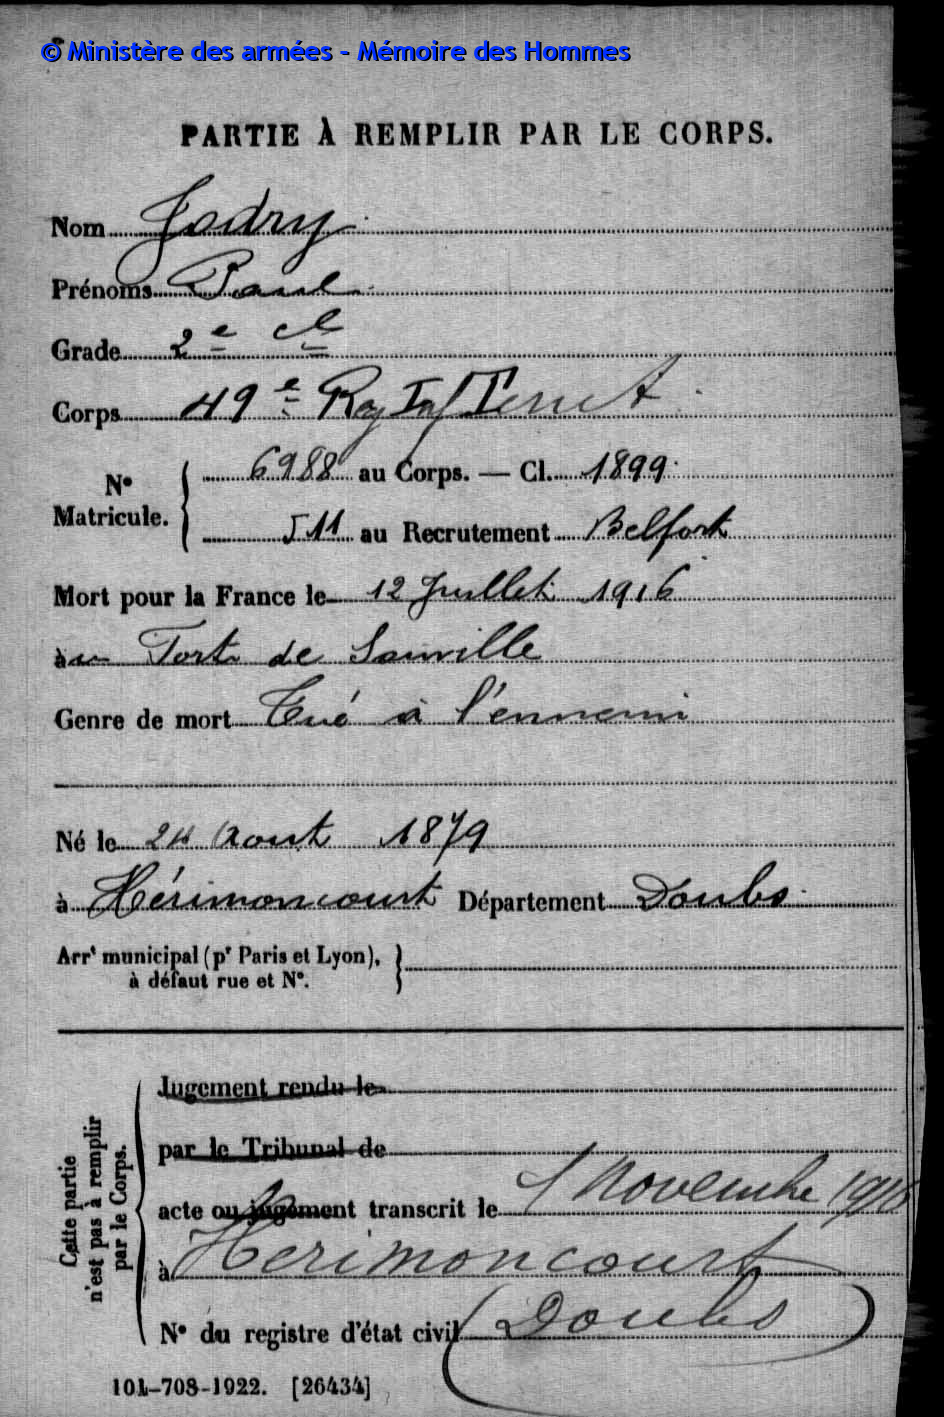 © Ministère des armées - Mémoire des Hommes
PARTIE À REMPLIR PAR LE CORPS.
Nom Jodry
Prénoms Paul
Grade 2e cl
Corps 49e Reg Inf Territ
N° Matricule. 6988 au Corps. — Cl. 1899
511 au Recrutement Belfort
Mort pour la France le 12 Juillet 1916
au Fort de Souville
Genre de mort Tué à l'ennemi
Né le 24 Aout 1879
à Hérimoncourt Département Doubs
Arrt municipal (pr Paris et Lyon),
à défaut rue et N°.
Cette partie
n'est pas à remplir
par le Corps.
Jugement rendu le
par le Tribunal de
acte ou jugement transcrit le 1 Novembre 1916
à Herimoncourt
(Doubs)
N° du registre d'état civil
101-708-1922. [26434]